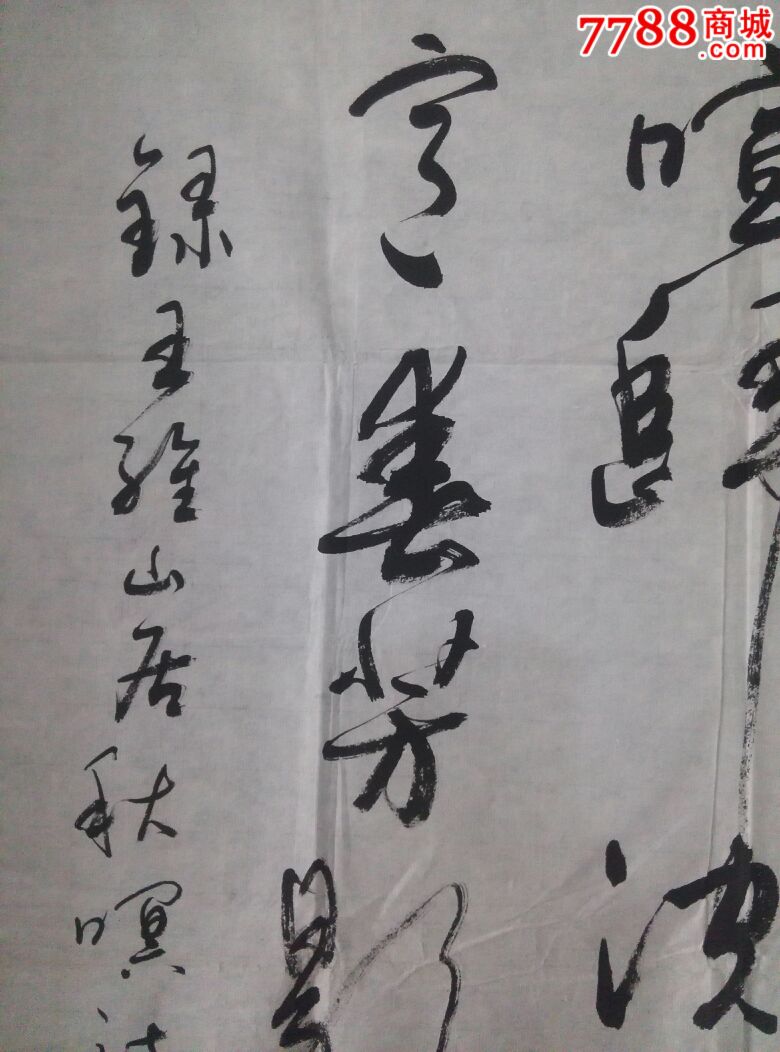 7788商城
.com
喧歸浣
意春芳歇
録王維山居秋暝詩